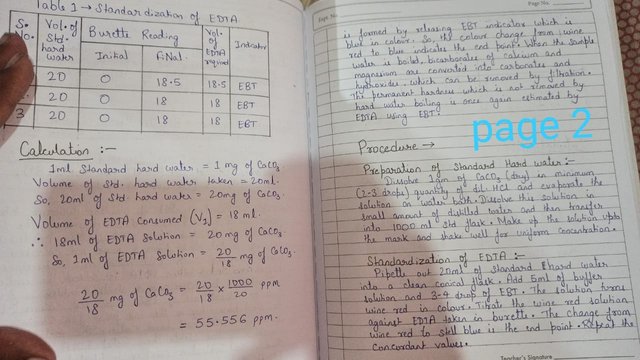 Table 1 → Standardization of EDTA.
S. No. Vol. of Std. hard water Burette Reading Vol. of EDTA required Indicator
Initial Final
20 0 18.5 18.5 EBT
20 0 18 18 EBT
3 20 0 18 18 EBT
Calculation :-
1ml Standard hard water = 1 mg of CaCO3
Volume of Std. hard water taken = 20ml.
So, 20ml of Std hard water = 20mg of CaCO3.
Volume of EDTA Consumed (V2) = 18 ml.
∴ 18ml of EDTA Solution = 20 mg of CaCO3.
So, 1ml of EDTA Solution = 20/18 mg of CaCO3.
20/18 mg of CaCO3 = 20/18 × 1000/20 ppm
= 55.556 ppm.
Page No.
is formed by releasing EBT indicator which is
blue in colour. So, the colour change from wine
red to blue indicates the end point. When the sample
water is boiled, bicarbonates of calcium and
magnesium are converted into carbonates and
hydroxides, which can be removed by filtration.
The permanent hardness which is not removed by
hard water boiling is once again estimated by
EDTA using EBT.
page 2
Procedure →
Preparation of Standard Hard water :-
Dissolve 1gm of CaCO3 (dry) in minimum
(2-3 drops) quantity of dil. HCl and evaporate the
solution on water bath. Dissolve this solution in
small amount of distilled water and then transfer
into 1000 ml std flask. Make up the solution upto
the mark and shake well for uniform concentration.
Standardization of EDTA :-
Pipette out 20ml of standard hard water
into a clean conical flask. Add 5ml of buffer
solution and 3-4 drop of EBT. The solution turns
wine red in colour. Titrate the wine red solution
against EDTA taken in burette. The change from
wine red to still blue is the end point. Repeat the
Concordant values.
Teacher's Signature